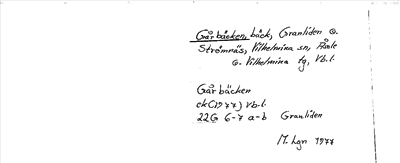 Gårbäcken, bäck, Granliden o.
Strömnäs, Vilhelmina sn, Åsele
o. Vilhelmina tg, Vb.l.
Gårbäcken
ek (1977) Vb.l.
22G 6-7 a-b Granliden
M. Lgn 1977